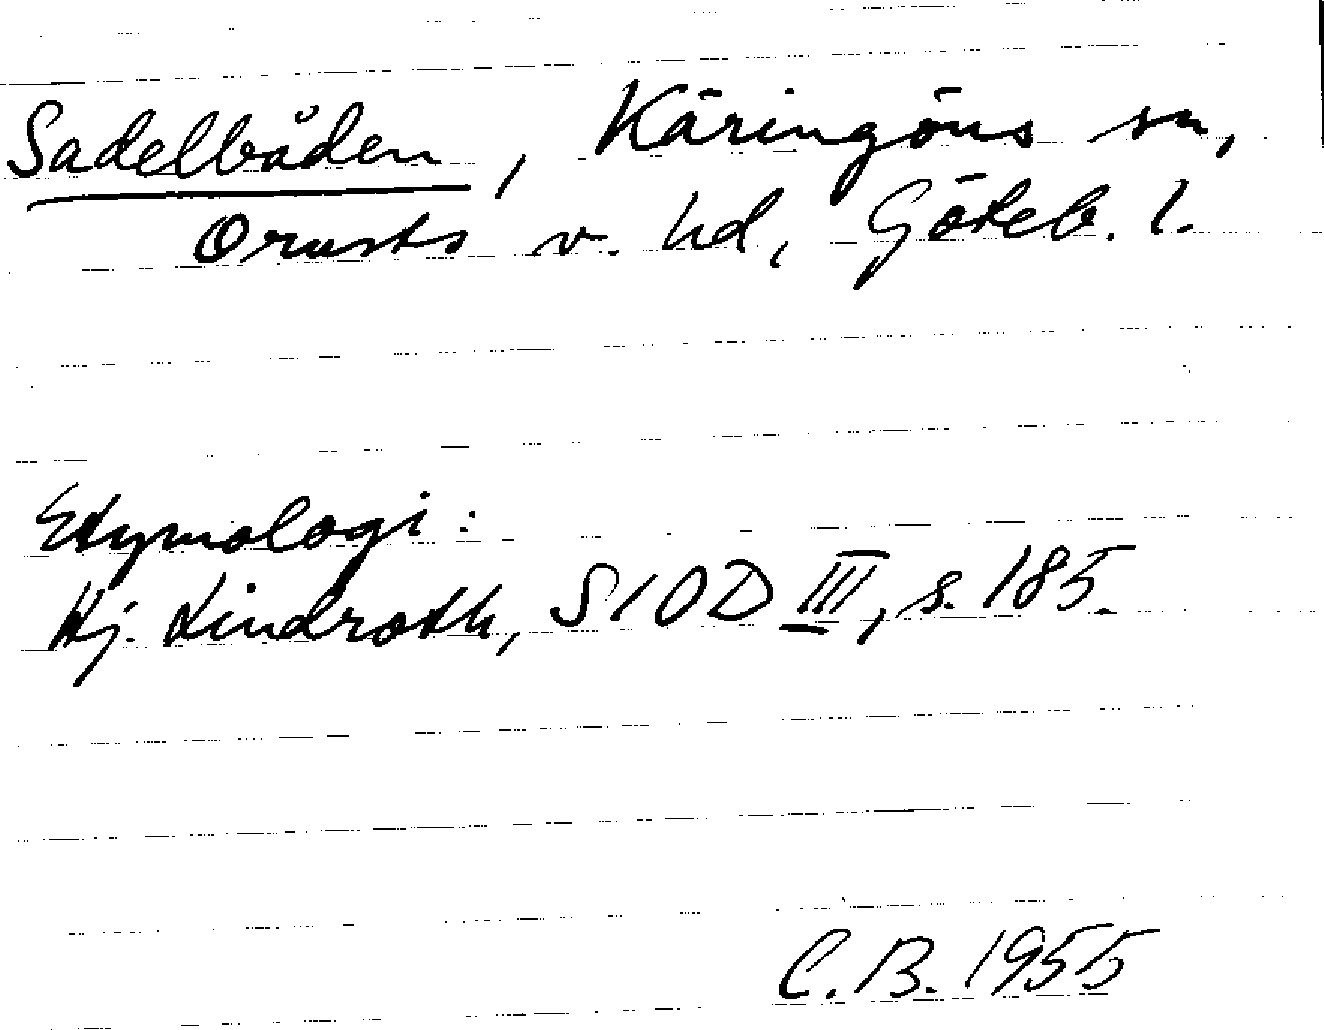 Sadelbåden, Käringöns sn,
Orusts v. hd, Göteb. l.
Etymologi:
Hj. Lindroth, SIOD III, s. 185.
C.B. 1955